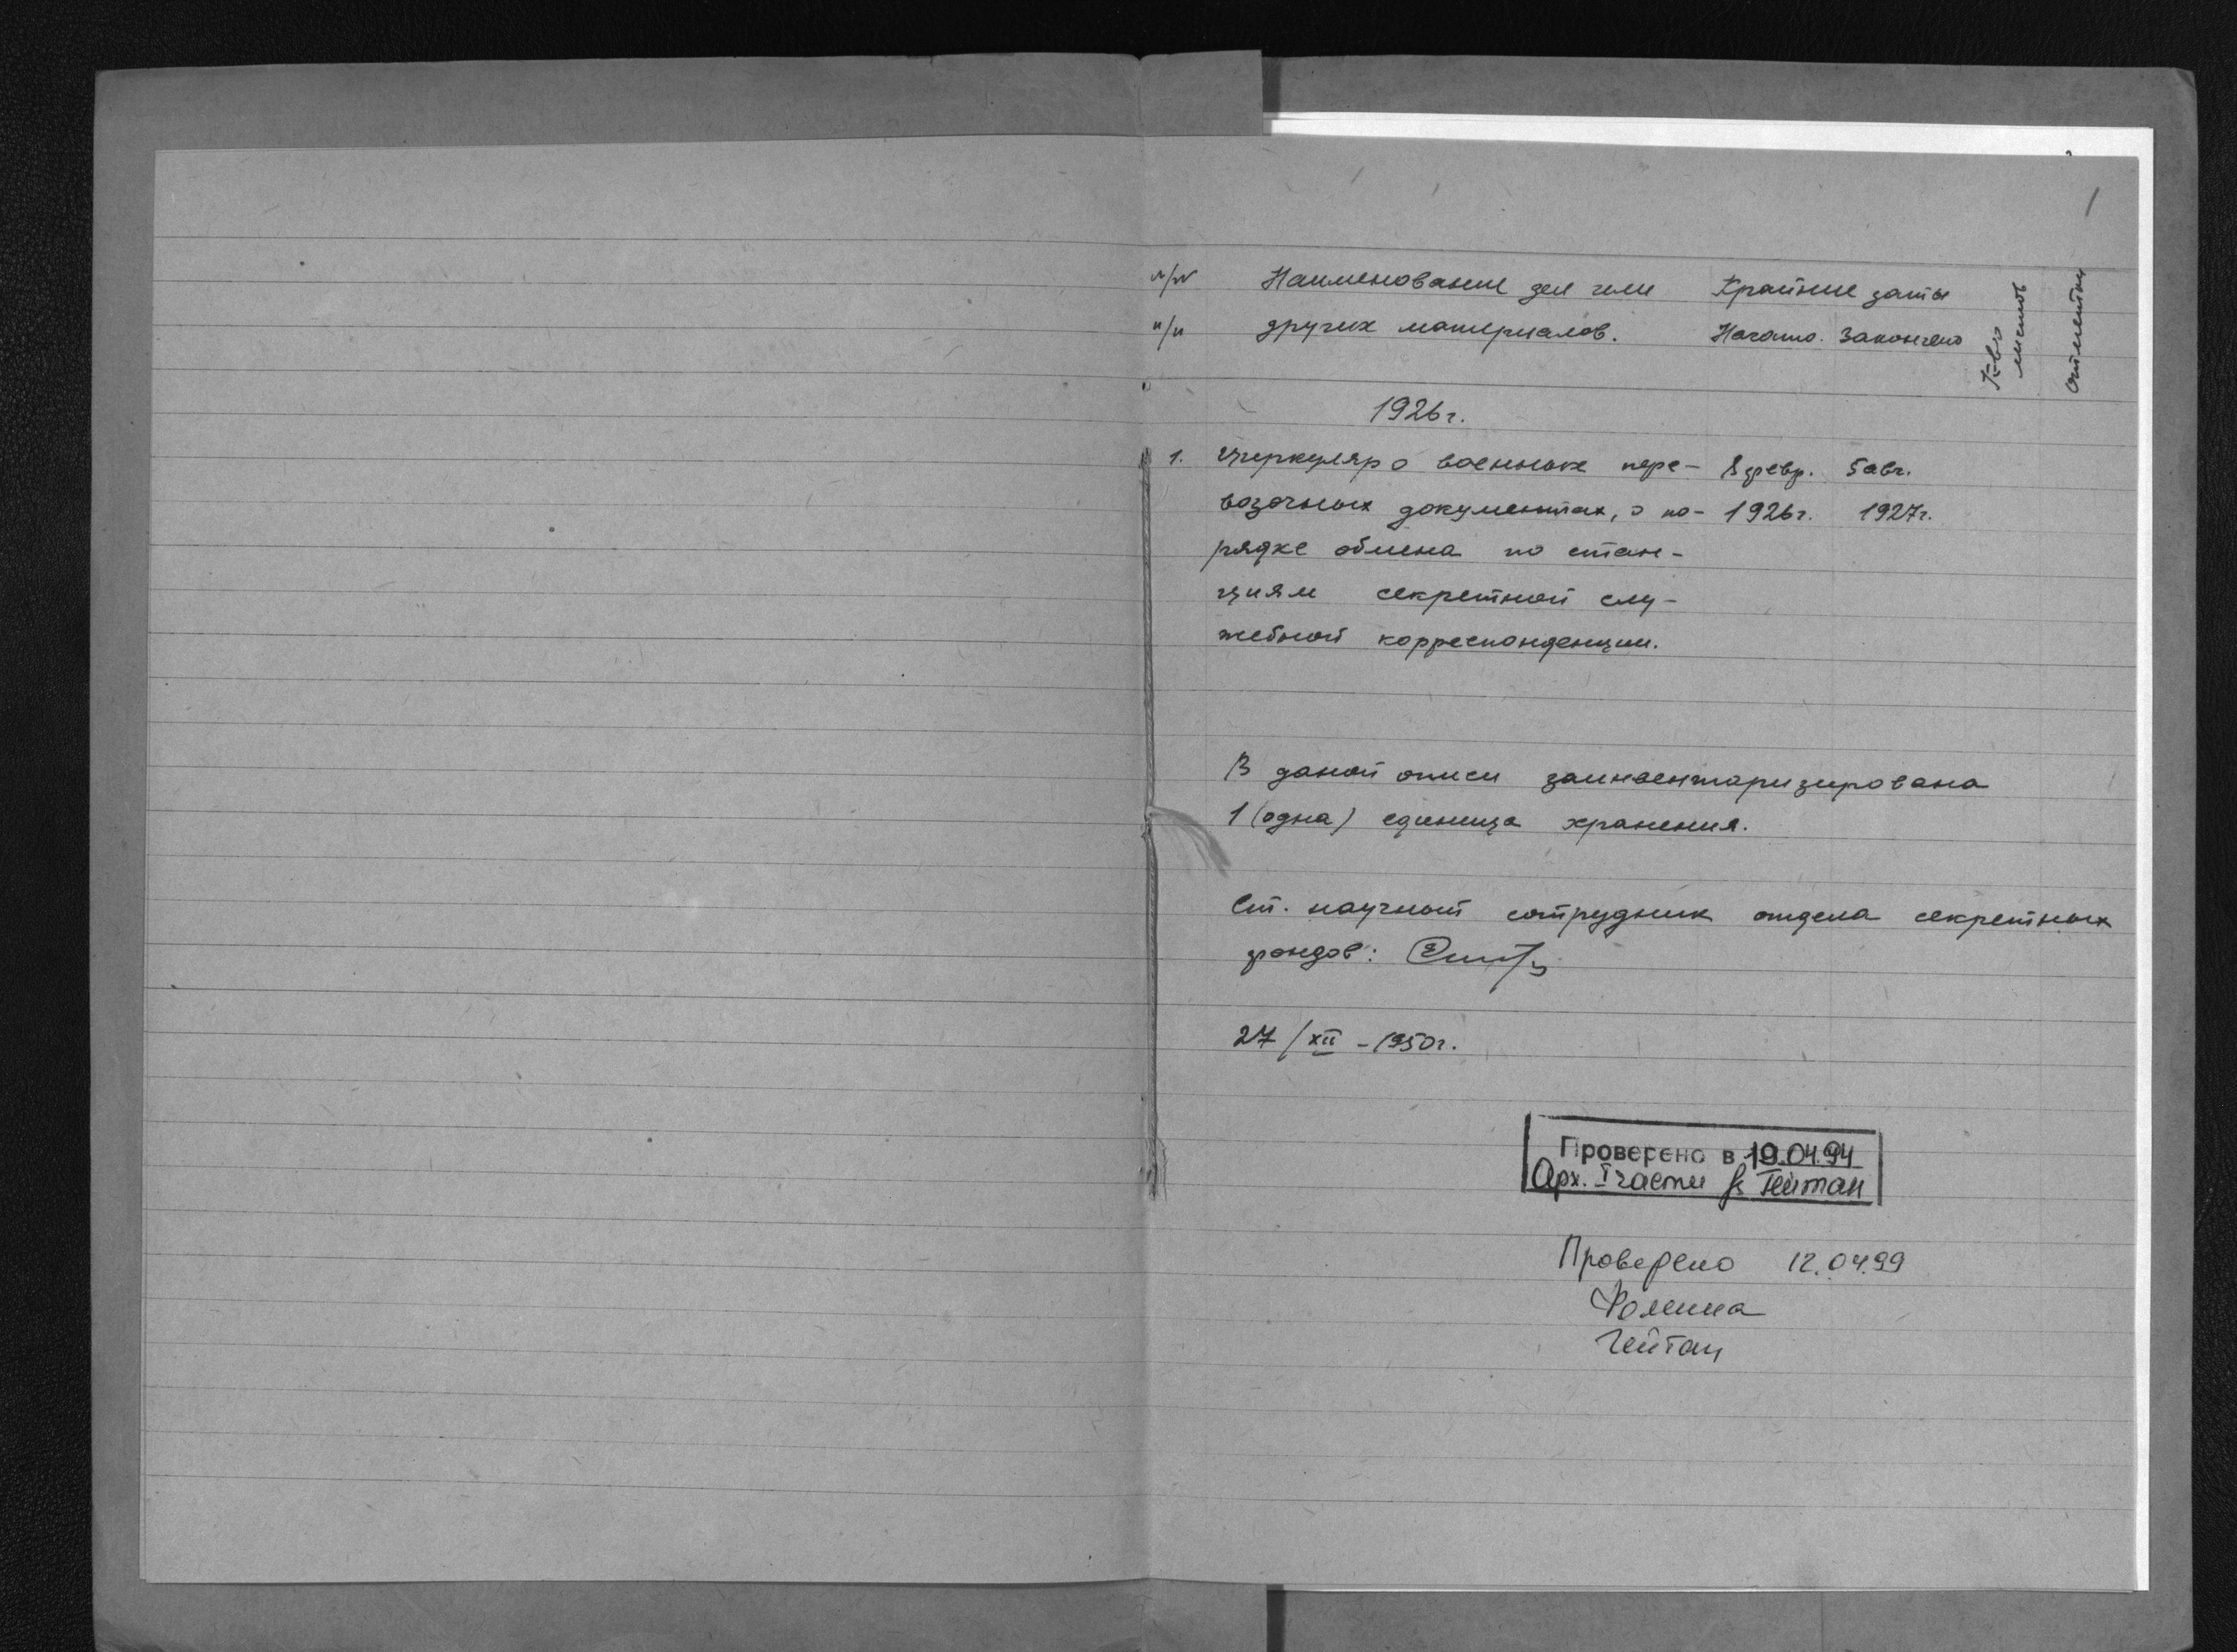 1
№/№ Наименование дел или Крайние даты К-во листов Отметки
п/п других материалов. Начато. Закончено
1926г.
1. Циркуляр о военных пере- 8 февр. 5 авг.
возочных документах, о по- 1926г. 1927г.
рядке обмена по стан-
циям секретной слу-
жебной корреспонденции.
В даной описи заинвентаризирована
1 (одна) единица хранения.
Ст. научный сотрудник отдела секретных
фондов:
27/XII - 1950г.
Проверено в 19.04.94
Арх. I части Гейтан
Проверено 12.04.99
Фомина
Гейтан